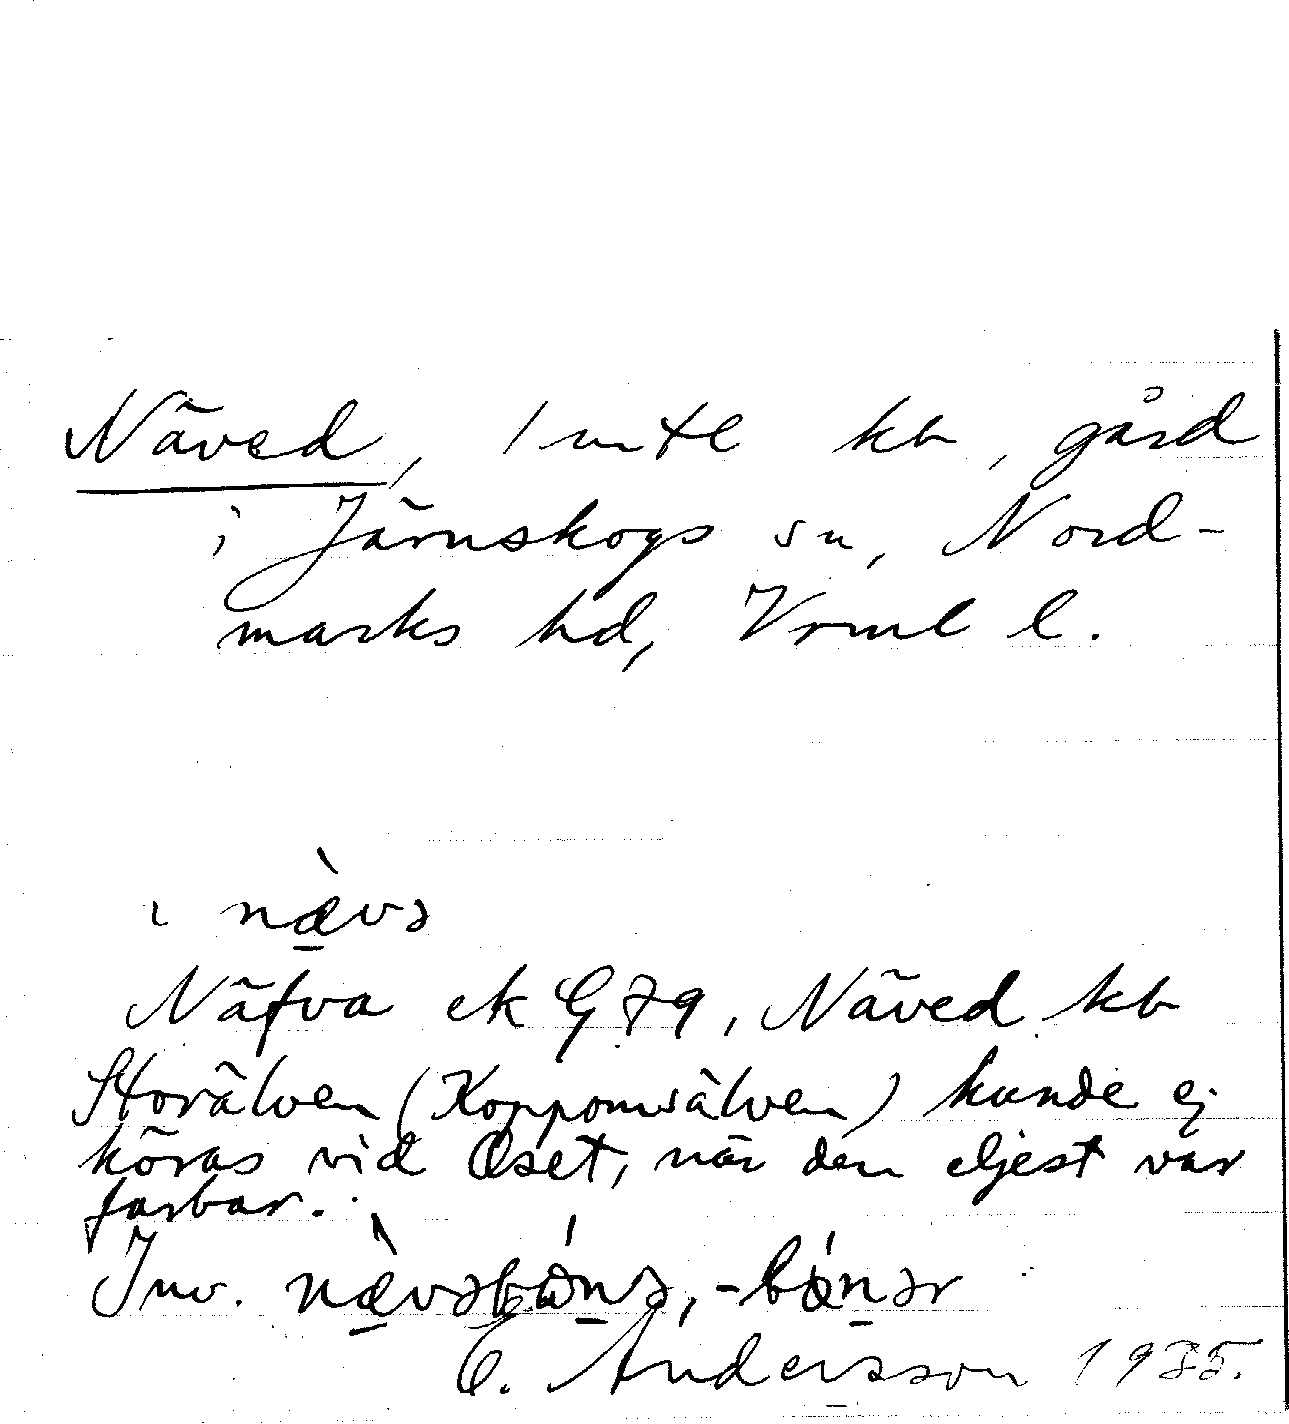 Näved, 1 mtl kb, gård
i Järnskogs sn, Nord-
marks hd, Vrml l.
i næ̀və
Näfva ek G 79, Näved kb
Storälven (Koppomsälven) kunde ej
köras vid Oset, när den eljest var
farbar.
Inv. nævəbónə, -bǿnər
C. Andersson 1935.